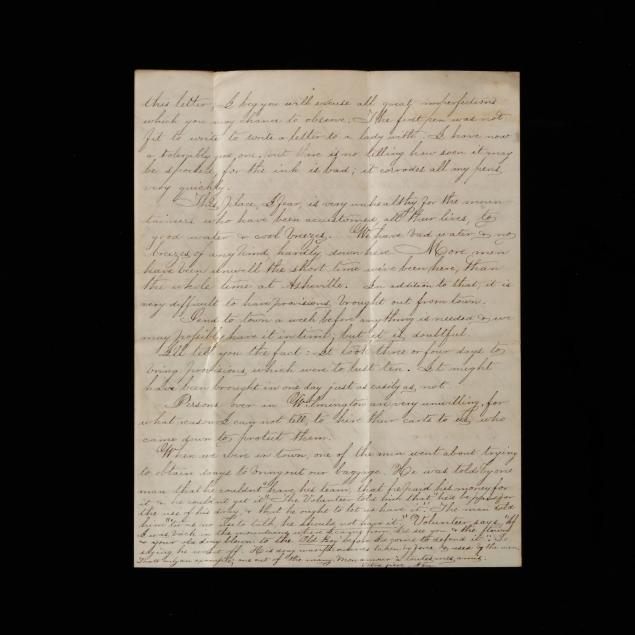 this letter, I beg you will excuse all great imperfections
which you may chance to observe. The first pen was not
fit to write to write a letter to a lady with. I have now
a tolerably good one, but there is no telling how soon it may
be spoiled, for the ink is bad; it corrodes all my pens
very quickly.
This place, I fear, is very unhealthy for the moun-
taineers who have been accustomed, all their lives, to
good water & cool breezes. We have bad water & no
breezes of any kind, hardly down here. More men
have been unwell the short time we've been here, than
the whole time at Asheville. In addition to that, it is
very difficult to have provisions brought out from town.
Send to town a week before any thing is needed & we
may possibly have it in time; but it is doubtful.
I'll tell you the fact: It took three or four days to
bring provisions, which were to last ten. It might
have been brought in one day just as easily as not.
Persons over in Wilmington are very unwilling, for
what reason I can not tell, to hire their carts to us, who
came down to protect them.
When we were in town, one of the men went about trying
to obtain ways to bring out our baggage. He was told by one
man that he couldn't have his team, that he paid his money for
it & he couldn't get it. The Volunteer told him that he'd pay for
the use of his dray, & that he ought to let us have it. The man told
him no use to talk he should not have it. Volunteer says, "If
I was back in the mountains where I came from I'd see you & the
& your old dray blown to the Old Boy before I'd come to defend it". So
saying he went off. His dray was taken by force & used by the men
That's only an example, one out of the many.